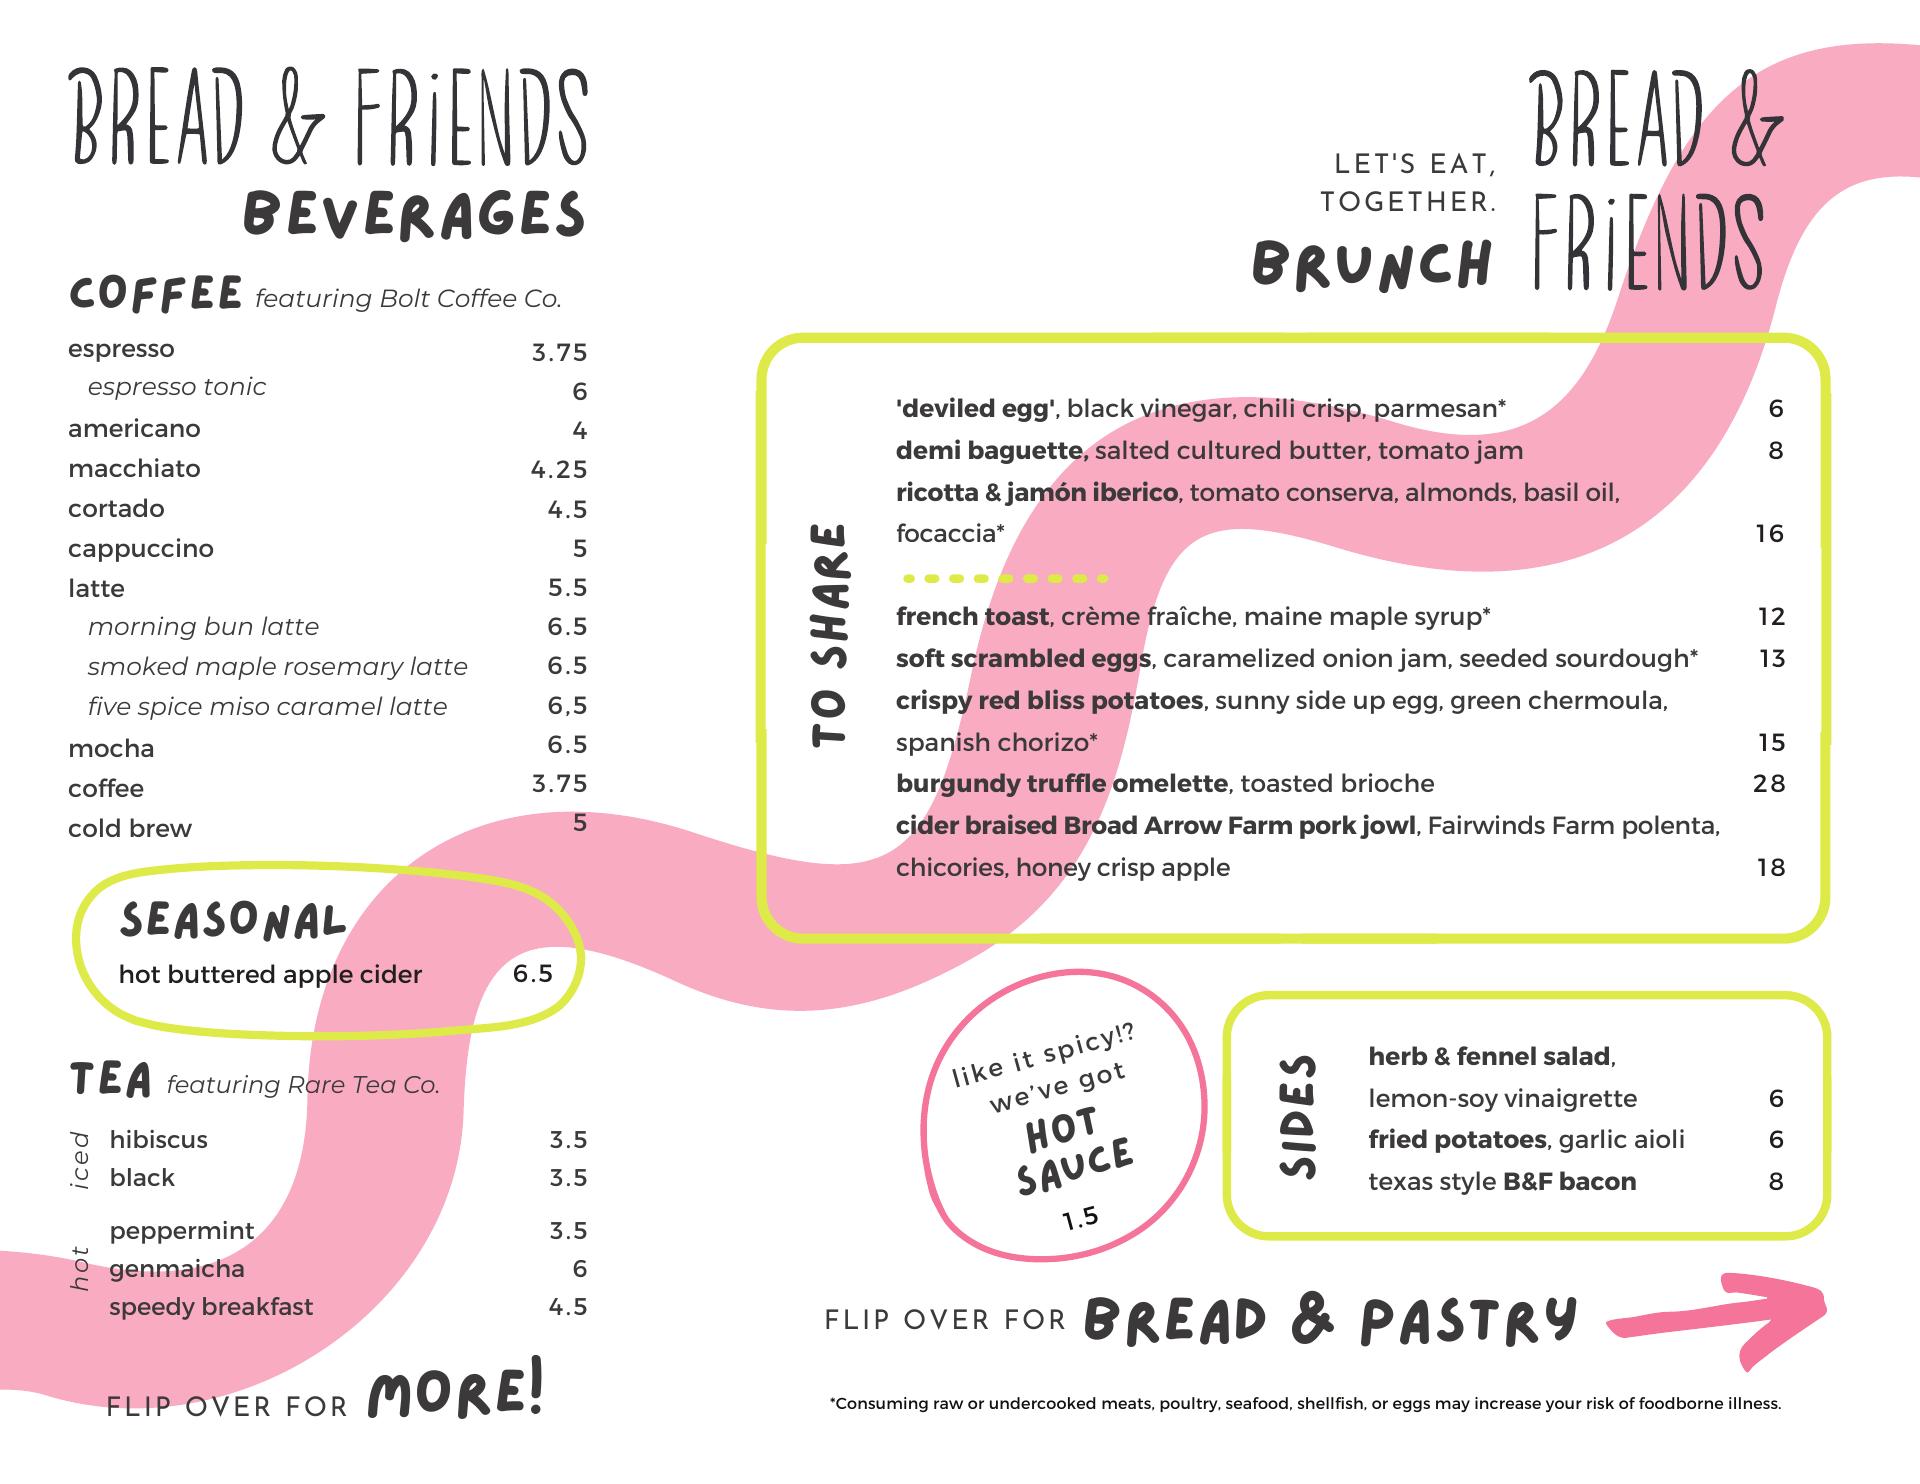 BREAD & FRiENDS
BEVERAGES
COFFEE featuring Bolt Coffee Co.
espresso 3.75
espresso tonic 6
americano 4
macchiato 4.25
cortado 4.5
cappuccino 5
latte 5.5
morning bun latte 6.5
smoked maple rosemary latte 6.5
five spice miso caramel latte 6,5
mocha 6.5
coffee 3.75
cold brew 5
SEASONAL
hot buttered apple cider 6.5
TEA featuring Rare Tea Co.
iced
hibiscus 3.5
black 3.5
hot
peppermint 3.5
genmaicha 6
speedy breakfast 4.5
FLIP OVER FOR MORE!
LET'S EAT,
TOGETHER.
BRUNCH
BREAD &
FRiENDS
TO SHARE
'deviled egg', black vinegar, chili crisp, parmesan* 6
demi baguette, salted cultured butter, tomato jam 8
ricotta & jamón iberico, tomato conserva, almonds, basil oil,
focaccia* 16
french toast, crème fraîche, maine maple syrup* 12
soft scrambled eggs, caramelized onion jam, seeded sourdough* 13
crispy red bliss potatoes, sunny side up egg, green chermoula,
spanish chorizo* 15
burgundy truffle omelette, toasted brioche 28
cider braised Broad Arrow Farm pork jowl, Fairwinds Farm polenta,
chicories, honey crisp apple 18
like it spicy!?
we've got
HOT
SAUCE
1.5
SIDES
herb & fennel salad,
lemon-soy vinaigrette 6
fried potatoes, garlic aioli 6
texas style B&F bacon 8
FLIP OVER FOR BREAD & PASTRY
*Consuming raw or undercooked meats, poultry, seafood, shellfish, or eggs may increase your risk of foodborne illness.